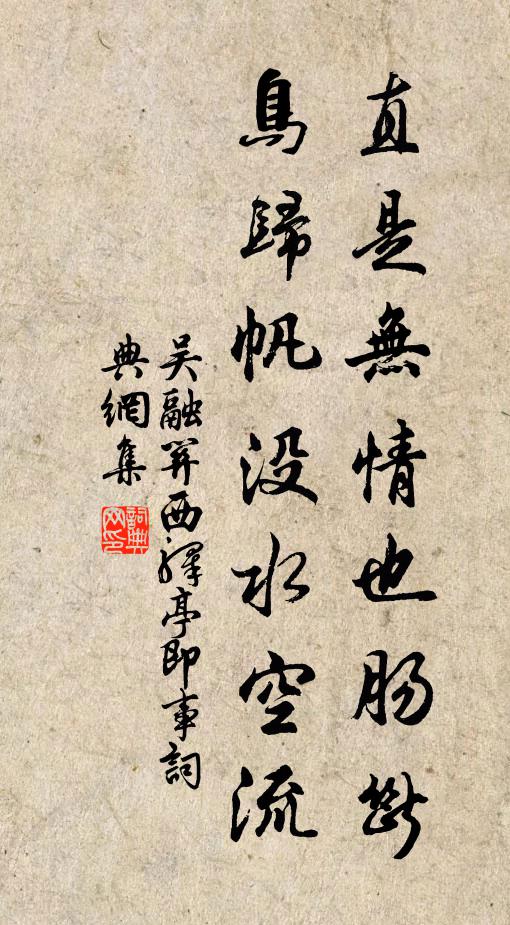 直是無情也腸斷
鳥歸帆没水空流
吴融關西驛亭即事詞
典網集
詞典
网印